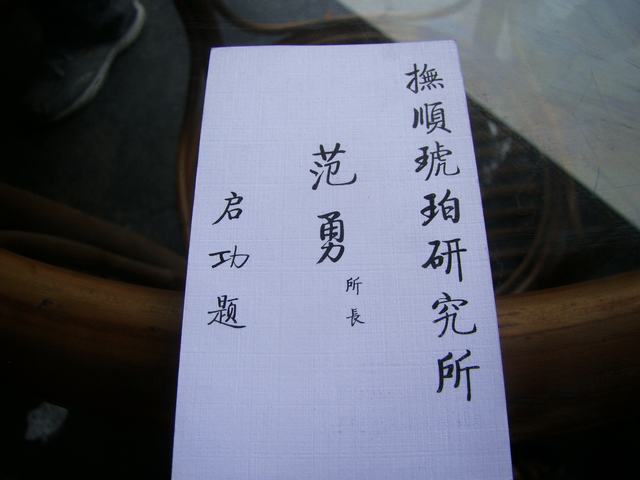 撫順琥珀研究所
范勇所長
启功题